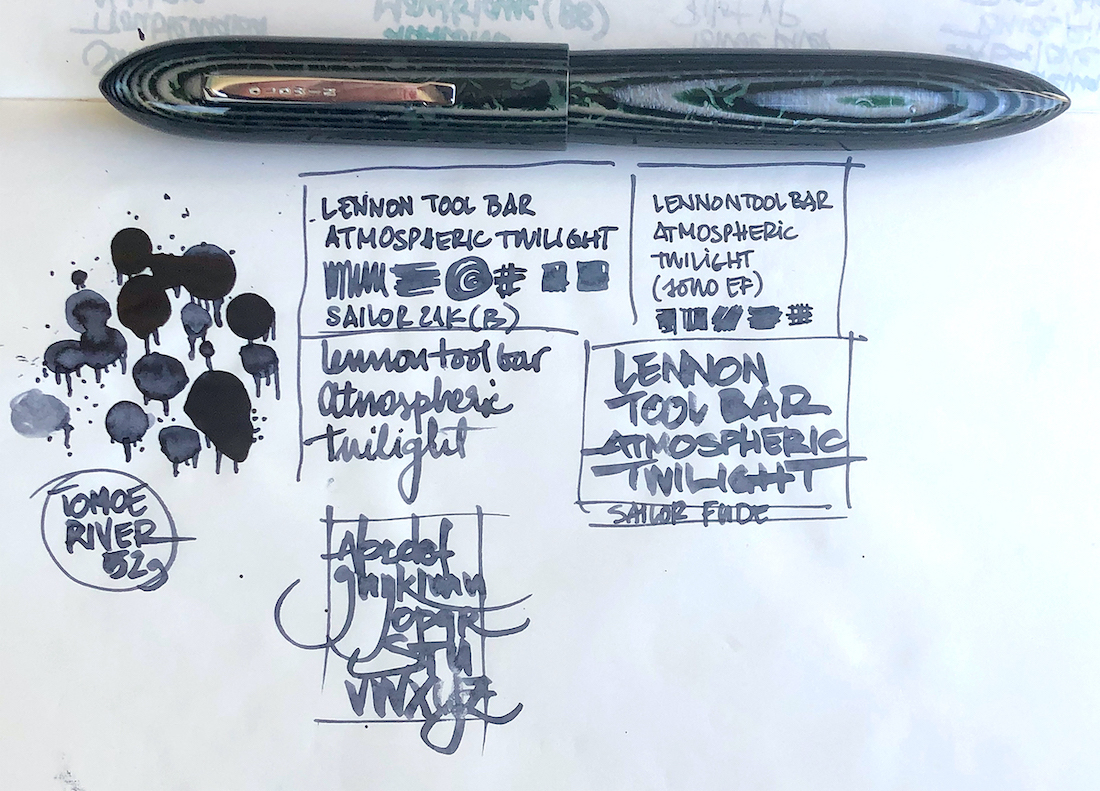 LENNON TOOL BAR
ATMOSPHERIC TWILIGHT
SAILOR 21K (B)
lennon tool bar
atmospheric
twilight
LENNON TOOL BAR
ATMOSPHERIC
TWILIGHT
(JOWO EF)
LENNON
TOOL BAR
ATMOSPHERIC
TWILIGHT
SAILOR FUDE
TOMOE
RIVER
52g
Abcdef
ghijklmn
opqr
STU
VWXYZ